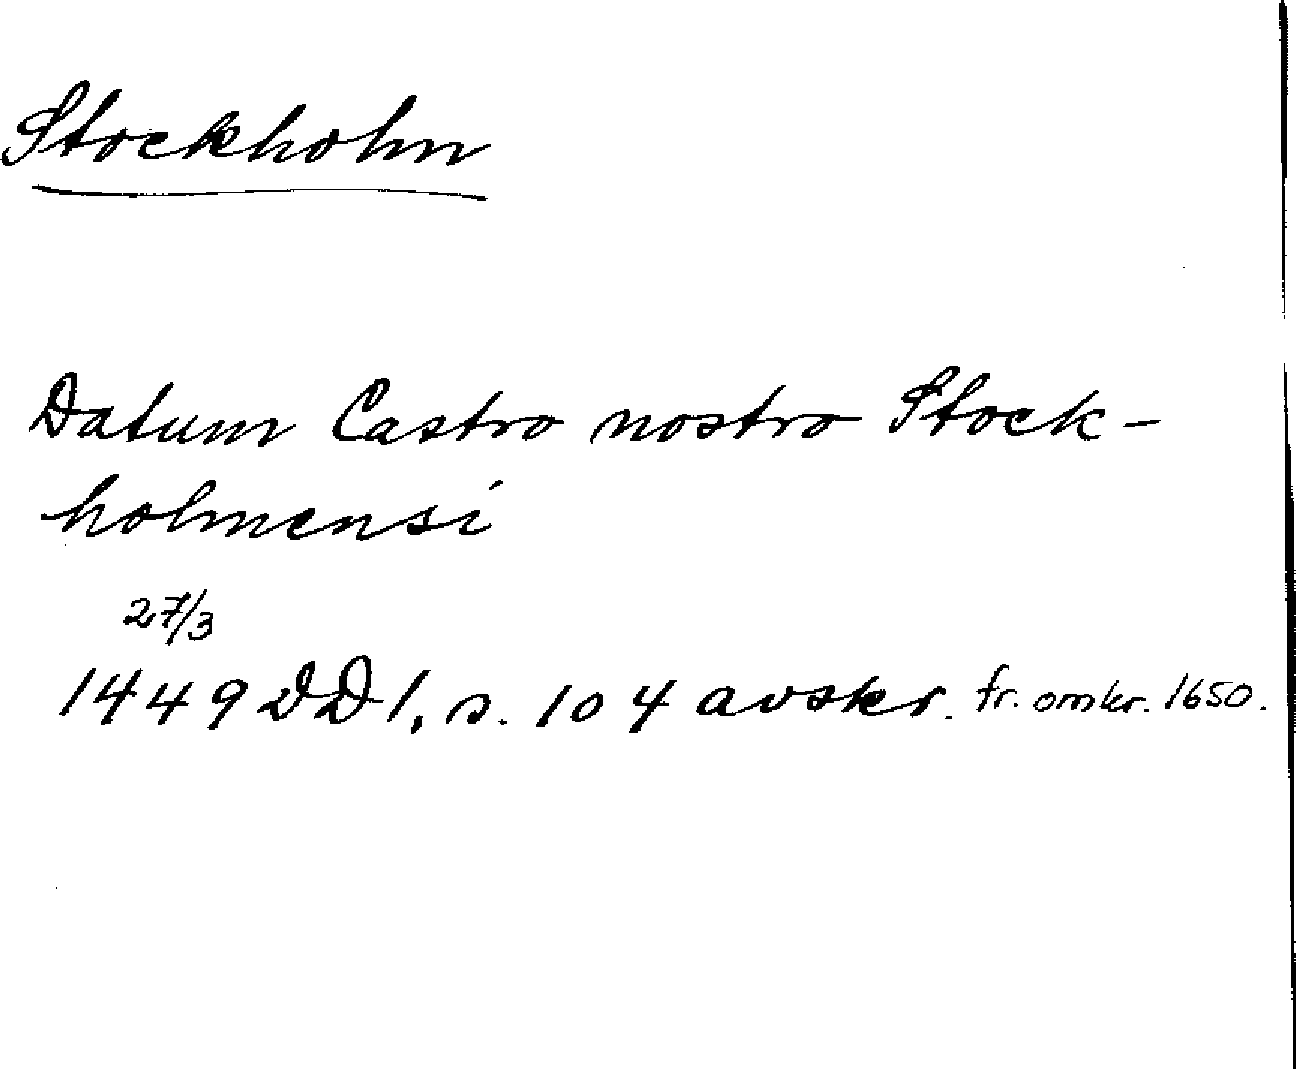 Stockholm
Datum Castro nostro Stock-
holmensi
27/3
1449 DD1, s. 104 avskr. fr. omkr. 1650.